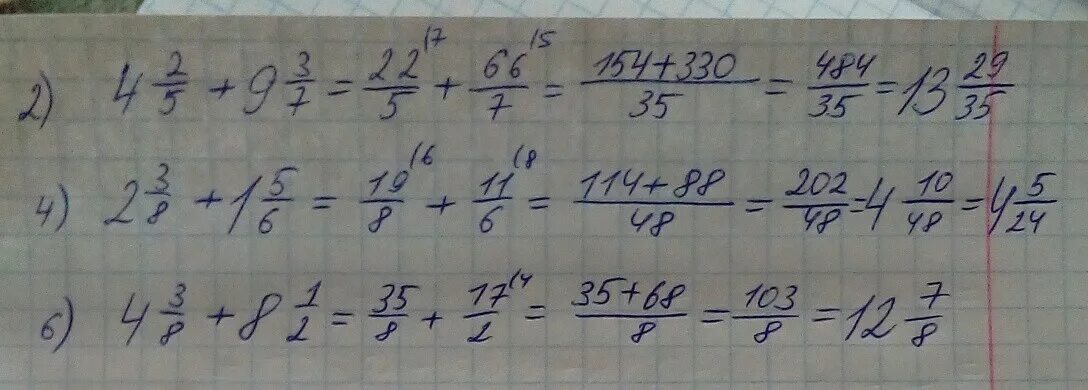 2) 4 2/5 + 9 3/7 = 22/5 (7 + 66/7 (5 = 154+330/35 = 484/35 = 13 29/35
4) 2 3/8 + 1 5/6 = 19/8 (6 + 11/6 (8 = 114+88/48 = 202/48 = 4 10/48 = 4 5/24
6) 4 3/8 + 8 1/2 = 35/8 + 17/2 (4 = 35+68/8 = 103/8 = 12 7/8